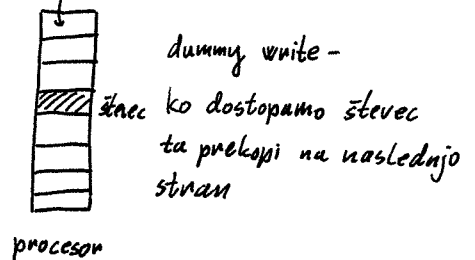 dummy write -
števec
ko dostopamo števec
ta prekopi na naslednjo
stran
procesor